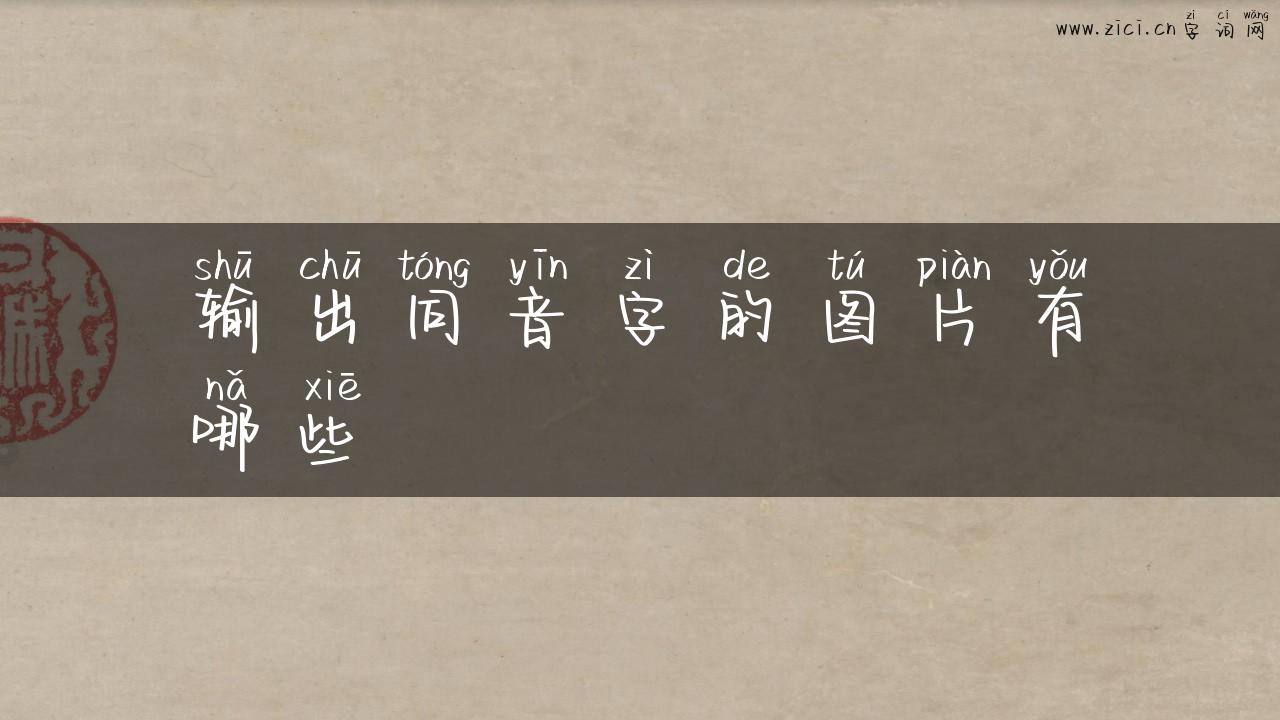 zì cí wǎng
www.zici.cn 字词网
shū chū tóng yīn zì de tú piàn yǒu
输出同音字的图片有
nǎ xiē
哪些